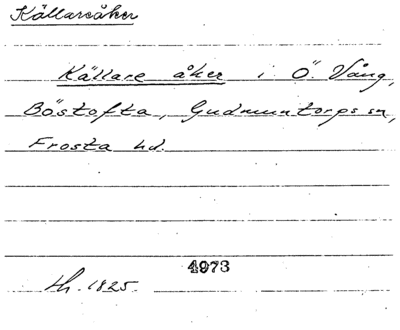 Källareåker
Källare åker i Ö. Vång,
Böstofta, Gudmuntorps sn,
Frosta hd.
4973
Lh. 1825.